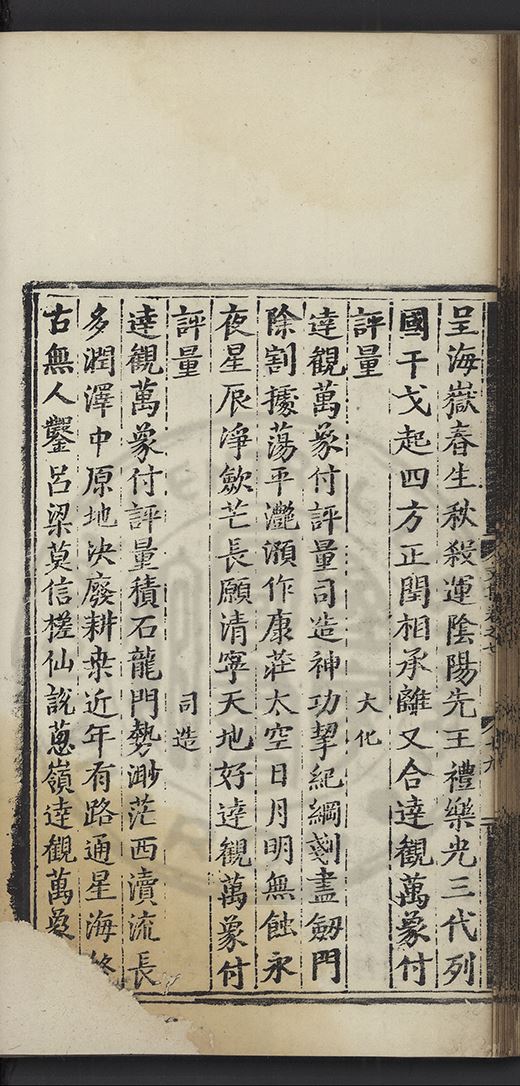 呈海嶽春生秋殺運陰陽先王禮樂光三代列
國干戈起四方正閏相承離又合達觀萬象付
評量　大化
達觀萬象付評量司造神功挈紀綱剗盡劒門
除割據蕩平灔澦作康莊太空日月明無蝕永
夜星辰淨歛芒長願清寧天地好達觀萬象付
評量　司造
達觀萬象付評量積石龍門勢渺茫西瀆流長
多潤澤中原地決廢耕桒近年有路通星海
古無人鑿呂梁莫信槎仙說蔥嶺達觀萬象